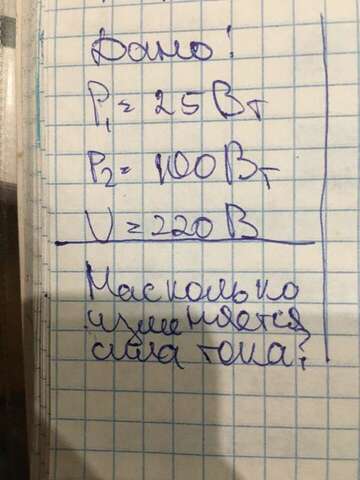 Дано:
P₁ = 25 Вт
P₂ = 100 Вт
U = 220 В
Насколько
изменяется
сила тока?